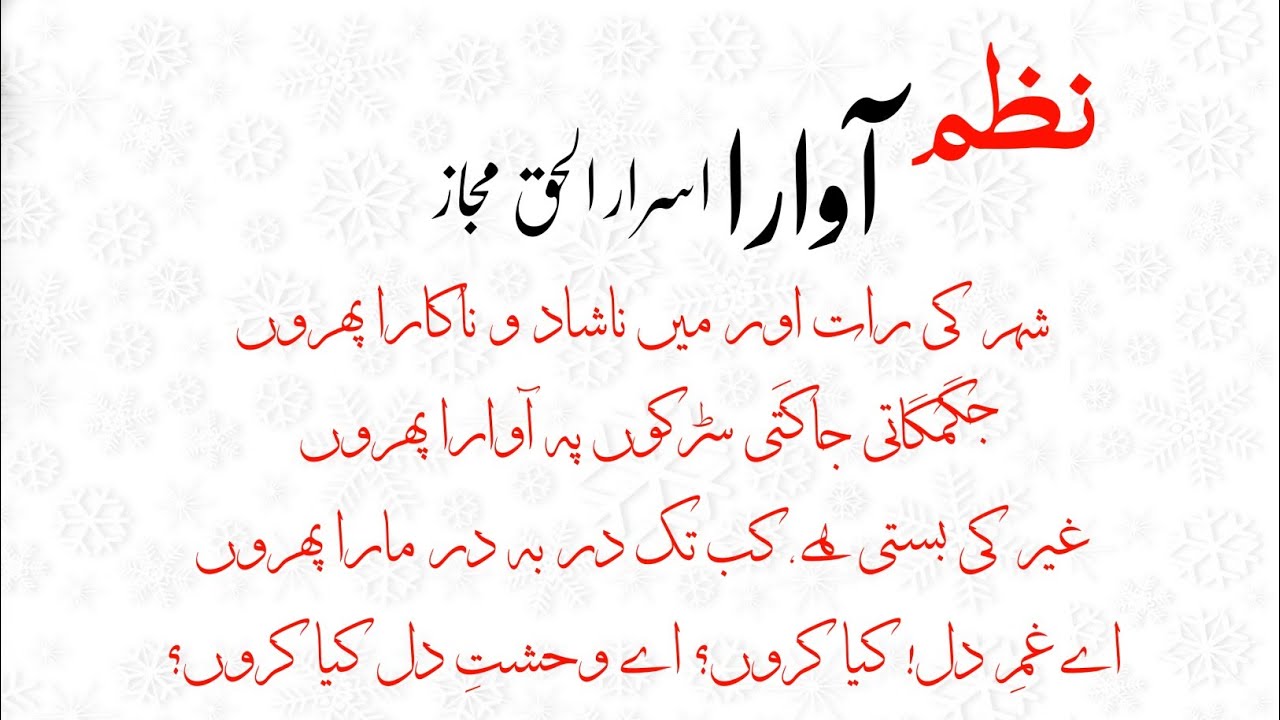 نظم
آوارا اسرار الحق مجاز
شہر کی رات اور میں ناشاد و ناکارا پھروں
جگمگاتی جاگتی سڑکوں پہ آوارا پھروں
غیر کی بستی ہے، کب تک در بہ در مارا پھروں
اے غمِ دل! کیا کروں؟ اے وحشتِ دل کیا کروں؟